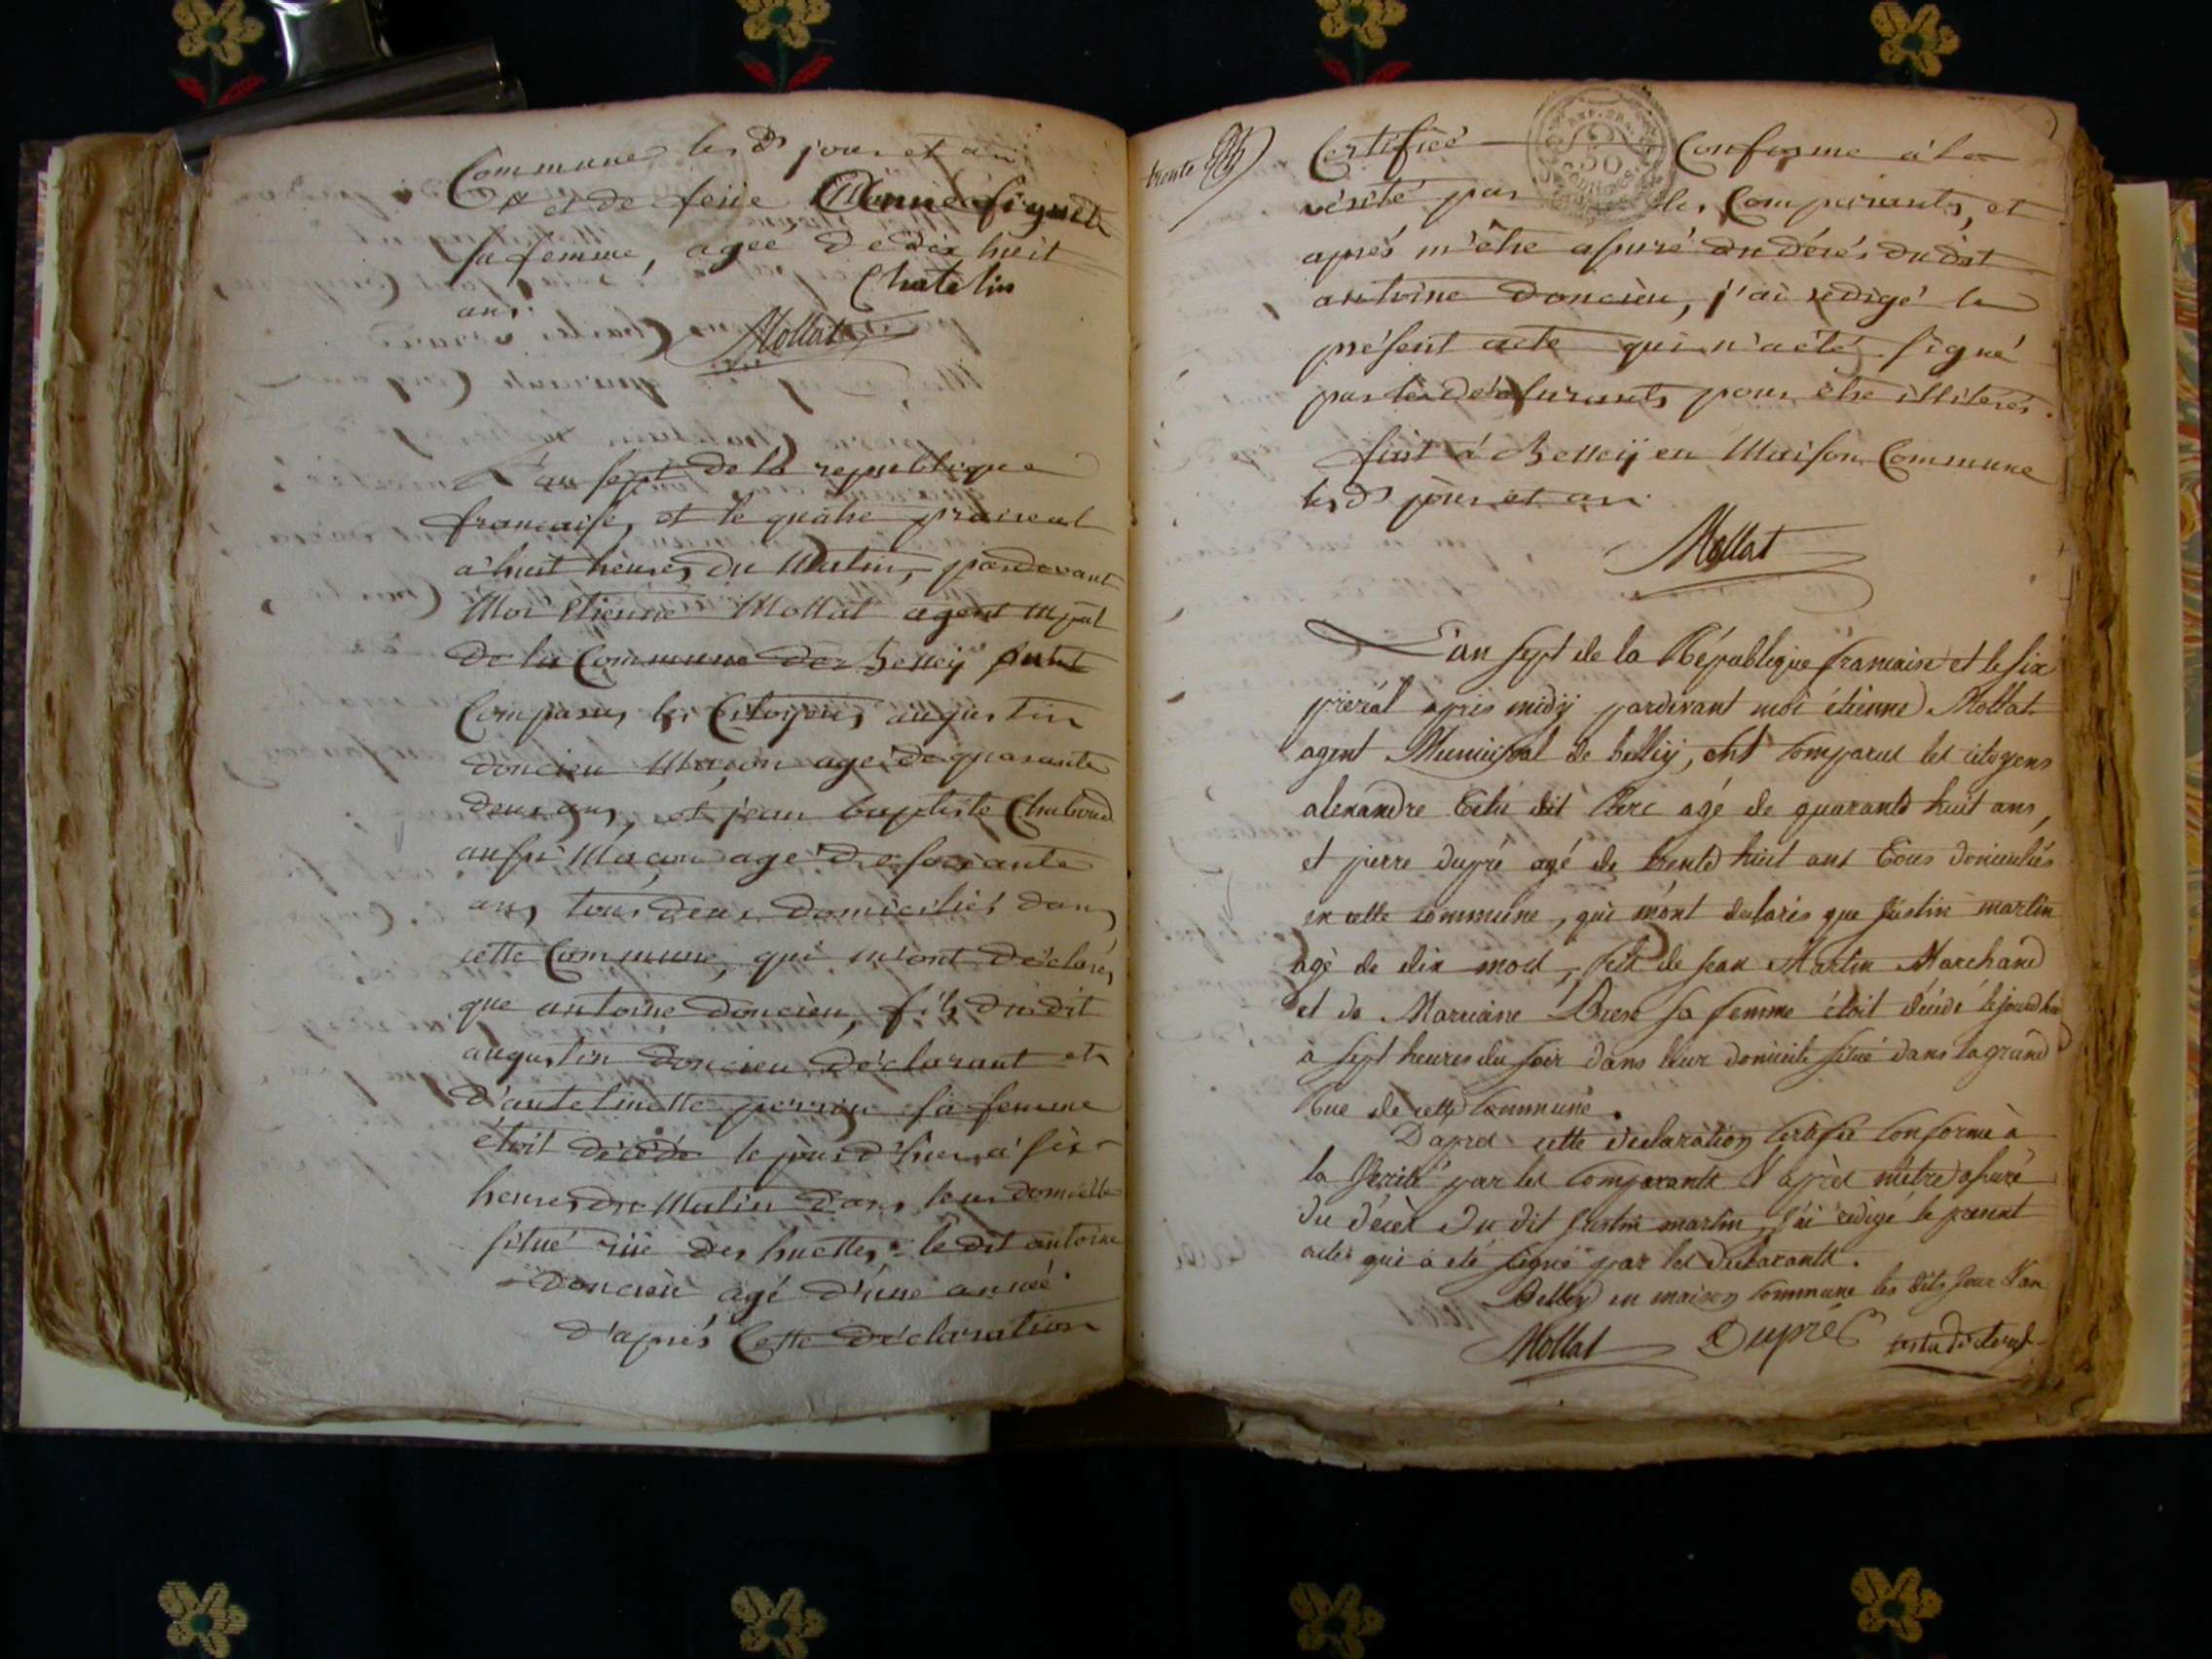 Commune les dts jour et an
et de feüe figuet
sa femme, ageé de dix huit
Chatelin
ans.
Mollat
L'an sept de la republique
française, et le quatre prairial
a huit heures du Matin, pardevant
Moi Etienne Mollat agent mpal
de la Commune de Belleÿ sont
Comparus les Citoyens augustin
doncieu Maçon agé de quarante
deux ans, et jean baptiste Chaboud
aussi Maçon agé de soixante
ans, tous deux domiciliés dans
cette Commune, qui m'ont déclaré,
que antoine doncieu, fils dudit
augustin doncieu déclarant et
d'antelmette perrin sa femme
étoit décédé le jour d'hier a six
heures du Matin dans leur domicile
situé rüe des huttes, le dit antoine
doncieu agé d'une année.
d'aprés Cette déclaration
trente
REP. FRA.
50
CENTIMES
Certifiée Conforme a la
vérité par les Comparants, et
aprés m'être assuré du décés dudit
antoine doncieu, j'ai redigé le
présent acte qui n'a été signé
par les déclarants pour être illiterés.
fait á Belleÿ en Maison Commune
les dts jour et an.
Mollat
L'an sept de la République francaise et le six
preréal apris midÿ pardevant moi étienne Mollat
agent Municipal de belleÿ, ont comparus les citoyens
alexandre dit Clerc agé de quarante huit ans,
et pierre dupré agé de trente huit ans tous domiciliés
en cette commune, qui m'ont declarés que Justin martin
agé de dix mois, fils de Jean Martin Marchand
et de Marriane sa femme étoit décédé
à sept heures du soir dans leur domicile situé dans la grand
Rue de cette Commune.
D'apres cette declaration certifié conforme à
la Verité par les comparants & apres m'etre assuré
du décès du dit Justin martin, j'ai rédigé le present
acte qui à eté signé par les declarants.
Belley en maison commune les dits jour & an
Mollat Dupré